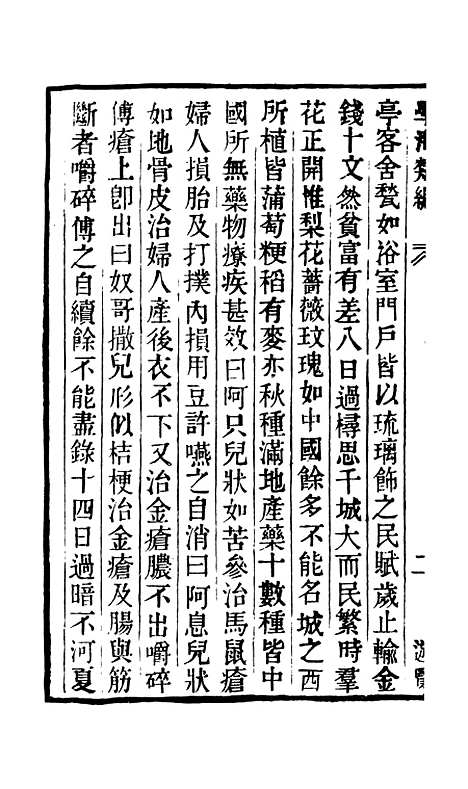 學海類編
二
遊覽
亭客舍甃如浴室門戶皆以琉璃飾之民賦歲止輸金
錢十文然貧富有差八日過㝷思干城大而民繁時羣
花正開惟梨花薔薇玟瑰如中國餘多不能名城之西
所植皆蒲萄粳稻有麥亦秋種滿地產藥十數種皆中
國所無藥物療疾甚效曰阿只兒狀如苦參治馬鼠瘡
婦人損胎及打撲內損用豆許嚥之自消曰阿息兒狀
如地骨皮治婦人產後衣不下又治金瘡膿不出嚼碎
傅瘡上卽出曰奴哥撒兒形似桔梗治金瘡及腸與筋
斷者嚼碎傅之自續餘不能盡錄十四日過暗不河夏